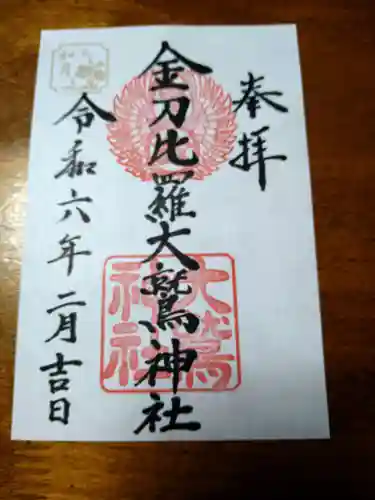 奉拝
金刀比羅大鷲神社
大鷲
神社
令和六年二月吉日
如月